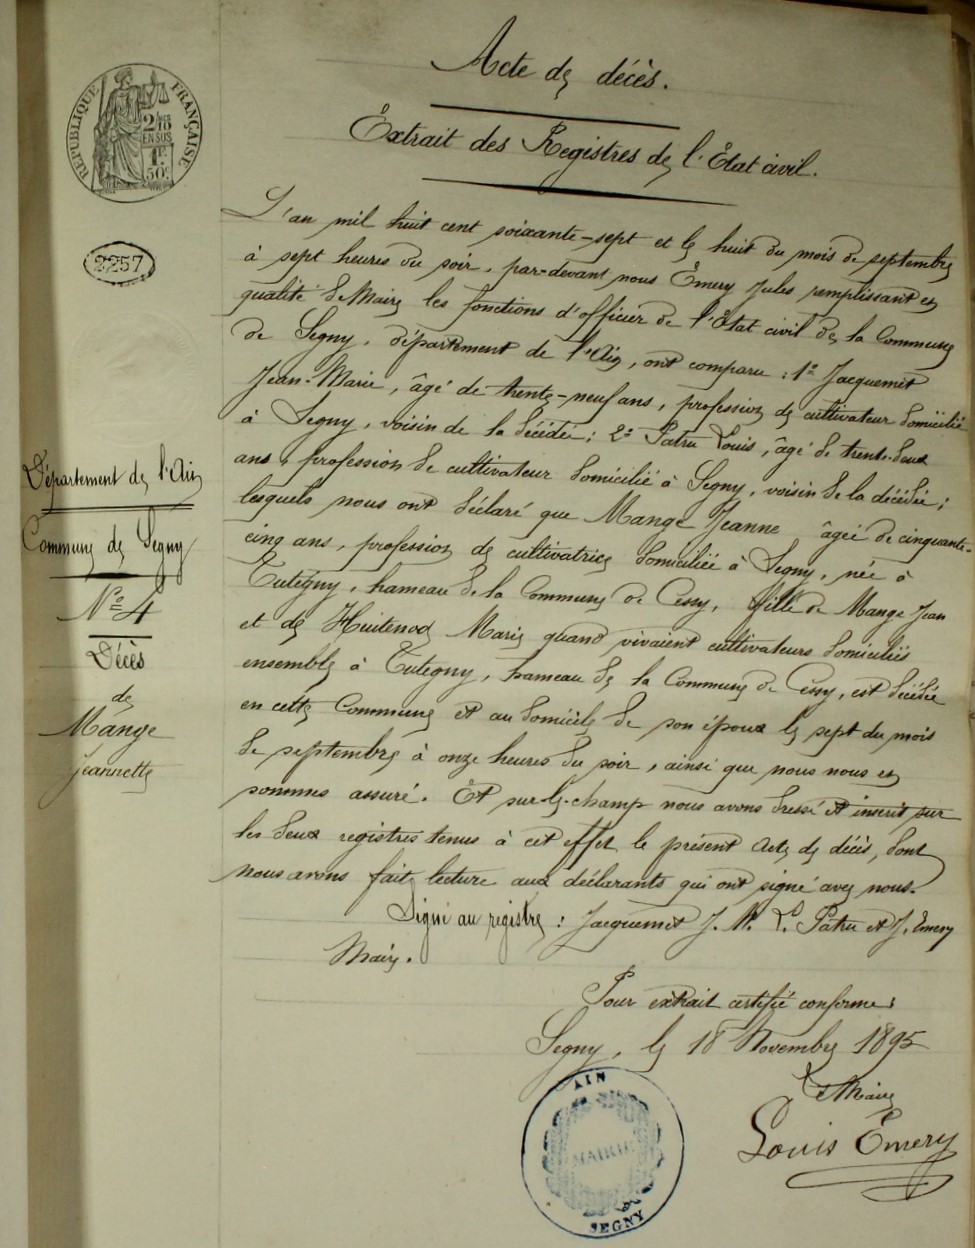 Acte de décès.
Extrait des Registres de l'État civil.
RÉPUBLIQUE FRANÇAISE
2/10
EN SUS
1F
50c
2257
Département de l'Ain
Commune de Segny
No 4
Décès
de
Mange
Jeannette
L'an mil huit cent soixante-sept et le huit du mois de septembre
à sept heures du soir, par-devant nous Émery Jules remplissant en
qualité de Maire les fonctions d'officier de l'État civil de la Commune
de Segny, département de l'Ain, ont comparu : 1o Jacquemet
Jean-Marie, âgé de trente-neuf ans, profession de cultivateur domicilié
à Segny, voisin de la décédée ; 2o Patru Louis, âgé de trente-deux
ans, profession de cultivateur domicilié à Segny, voisin de la décédée ;
lesquels nous ont déclaré que Mange Jeanne âgée de cinquante-
cinq ans, profession de cultivatrice domiciliée à Segny, née à
Tutegny, hameau de la Commune de Cessy, fille de Mange Jean
et de Marie quand vivaient cultivateurs domiciliés
ensemble à Tutegny, hameau de la Commune de Cessy, est décédée
en cette Commune et au domicile de son époux le sept du mois
de septembre à onze heures du soir, ainsi que nous nous en
sommes assuré. Et sur-le-champ nous avons dressé et inscrit sur
les deux registres tenus à cet effet le présent acte de décès, dont
nous avons fait lecture aux déclarants qui ont signé avec nous.
Signé au registre : Jacquemet J. M. L. Patru et J. Emery
Maire.
Pour extrait certifié conforme :
Segny, le 18 Novembre 1895
Le Maire
Louis Émery
AIN
MAIRIE
SEGNY